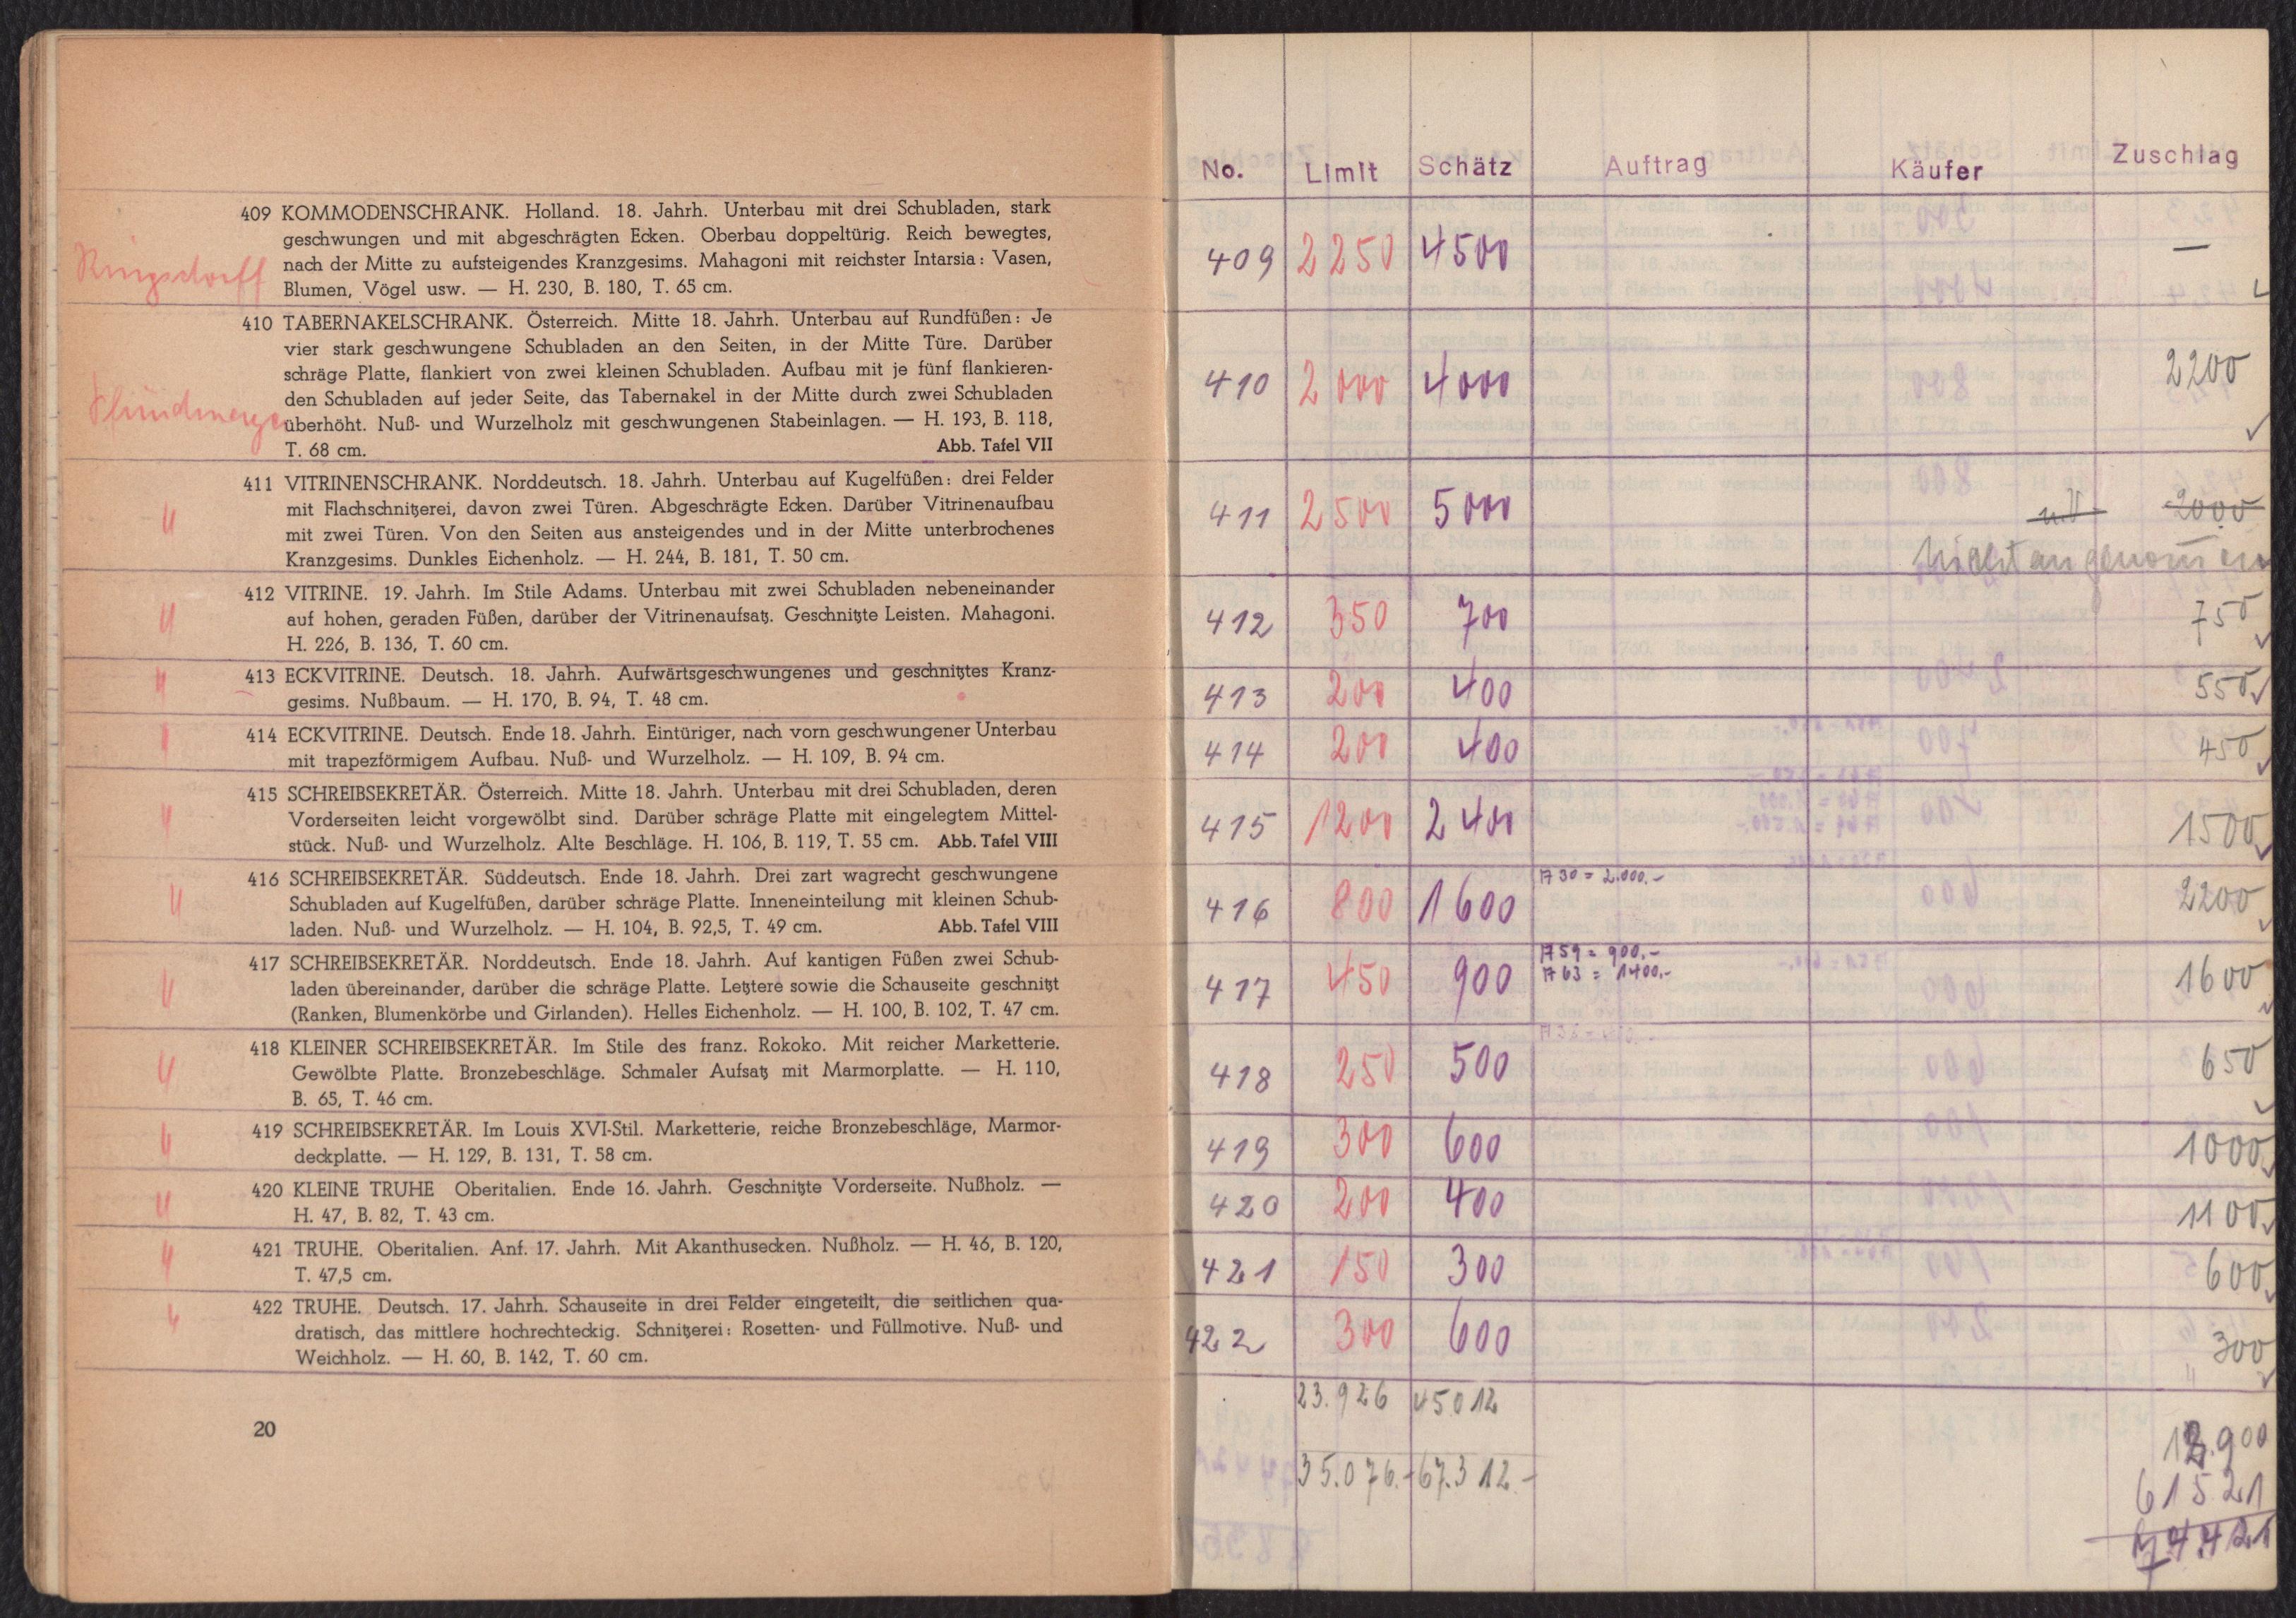 409 KOMMODENSCHRANK. Holland. 18. Jahrh. Unterbau mit drei Schubladen, stark
geschwungen und mit abgeschrägten Ecken. Oberbau doppeltürig. Reich bewegtes,
Ringsdorff
nach der Mitte zu aufsteigendes Kranzgesims. Mahagoni mit reichster Intarsia: Vasen,
Blumen, Vögel usw. — H. 230, B. 180, T. 65 cm.
410 TABERNAKELSCHRANK. Österreich. Mitte 18. Jahrh. Unterbau auf Rundfüßen: Je
vier stark geschwungene Schubladen an den Seiten, in der Mitte Türe. Darüber
schräge Platte, flankiert von zwei kleinen Schubladen. Aufbau mit je fünf flankieren-
den Schubladen auf jeder Seite, das Tabernakel in der Mitte durch zwei Schubladen
überhöht. Nuß- und Wurzelholz mit geschwungenen Stabeinlagen. — H. 193, B. 118,
T. 68 cm. Abb. Tafel VII
411 VITRINENSCHRANK. Norddeutsch. 18. Jahrh. Unterbau auf Kugelfüßen: drei Felder
mit Flachschnitzerei, davon zwei Türen. Abgeschrägte Ecken. Darüber Vitrinenaufbau
mit zwei Türen. Von den Seiten aus ansteigendes und in der Mitte unterbrochenes
Kranzgesims. Dunkles Eichenholz. — H. 244, B. 181, T. 50 cm.
412 VITRINE. 19. Jahrh. Im Stile Adams. Unterbau mit zwei Schubladen nebeneinander
auf hohen, geraden Füßen, darüber der Vitrinenaufsatz. Geschnitzte Leisten. Mahagoni.
H. 226, B. 136, T. 60 cm.
413 ECKVITRINE. Deutsch. 18. Jahrh. Aufwärtsgeschwungenes und geschnitztes Kranz-
gesims. Nußbaum. — H. 170, B. 94, T. 48 cm.
414 ECKVITRINE. Deutsch. Ende 18. Jahrh. Eintüriger, nach vorn geschwungener Unterbau
mit trapezförmigem Aufbau. Nuß- und Wurzelholz. — H. 109, B. 94 cm.
415 SCHREIBSEKRETÄR. Österreich. Mitte 18. Jahrh. Unterbau mit drei Schubladen, deren
Vorderseiten leicht vorgewölbt sind. Darüber schräge Platte mit eingelegtem Mittel-
stück. Nuß- und Wurzelholz. Alte Beschläge. H. 106, B. 119, T. 55 cm. Abb. Tafel VIII
416 SCHREIBSEKRETÄR. Süddeutsch. Ende 18. Jahrh. Drei zart wagrecht geschwungene
Schubladen auf Kugelfüßen, darüber schräge Platte. Inneneinteilung mit kleinen Schub-
laden. Nuß- und Wurzelholz. — H. 104, B. 92,5, T. 49 cm. Abb. Tafel VIII
417 SCHREIBSEKRETÄR. Norddeutsch. Ende 18. Jahrh. Auf kantigen Füßen zwei Schub-
laden übereinander, darüber die schräge Platte. Letztere sowie die Schauseite geschnitzt
(Ranken, Blumenkörbe und Girlanden). Helles Eichenholz. — H. 100, B. 102, T. 47 cm.
418 KLEINER SCHREIBSEKRETÄR. Im Stile des franz. Rokoko. Mit reicher Marketterie.
Gewölbte Platte. Bronzebeschläge. Schmaler Aufsatz mit Marmorplatte. — H. 110,
B. 65, T. 46 cm.
419 SCHREIBSEKRETÄR. Im Louis XVI-Stil. Marketterie, reiche Bronzebeschläge, Marmor-
deckplatte. — H. 129, B. 131, T. 58 cm.
420 KLEINE TRUHE Oberitalien. Ende 16. Jahrh. Geschnitzte Vorderseite. Nußholz. —
H. 47, B. 82, T. 43 cm.
421 TRUHE. Oberitalien. Anf. 17. Jahrh. Mit Akanthusecken. Nußholz. — H. 46, B. 120,
T. 47,5 cm.
422 TRUHE. Deutsch. 17. Jahrh. Schauseite in drei Felder eingeteilt, die seitlichen qua-
dratisch, das mittlere hochrechteckig. Schnitzerei: Rosetten- und Füllmotive. Nuß- und
Weichholz. — H. 60, B. 142, T. 60 cm.
20
No. Limit Schätz Auftrag Käufer Zuschlag
409 2250 4500 —
410 2000 4000 2200
411 2500 5000 2000
Nicht angenommen
412 350 700 750
413 200 400 550
414 200 400 450
415 1200 2400 1500
416 800 1600 A 30 = 2.000.- 2200
417 450 900 A 59 = 900.- 1600
A 63 = 1400.-
418 250 500 650
419 300 600 1000
420 200 400 1100
421 150 300 600
422 300 600 300
23.926 45012
12.900
35.076.- 67.312.-
61521
74421